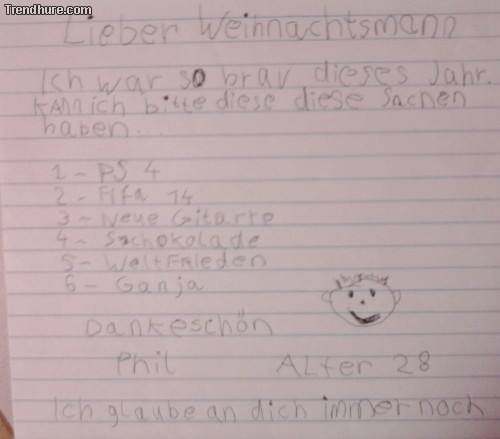 Trendhure.com
Lieber Weihnachtsmann
Ich war so brav dieses Jahr.
Kann ich bitte diese diese Sachen
haben...
1 - PS 4
2 - Fifa 14
3 - Neue Gitarre
4 - Schokolade
5 - WeltFrieden
6 - Ganja
Dankeschön
Phil Alter 28
Ich glaube an dich immer noch